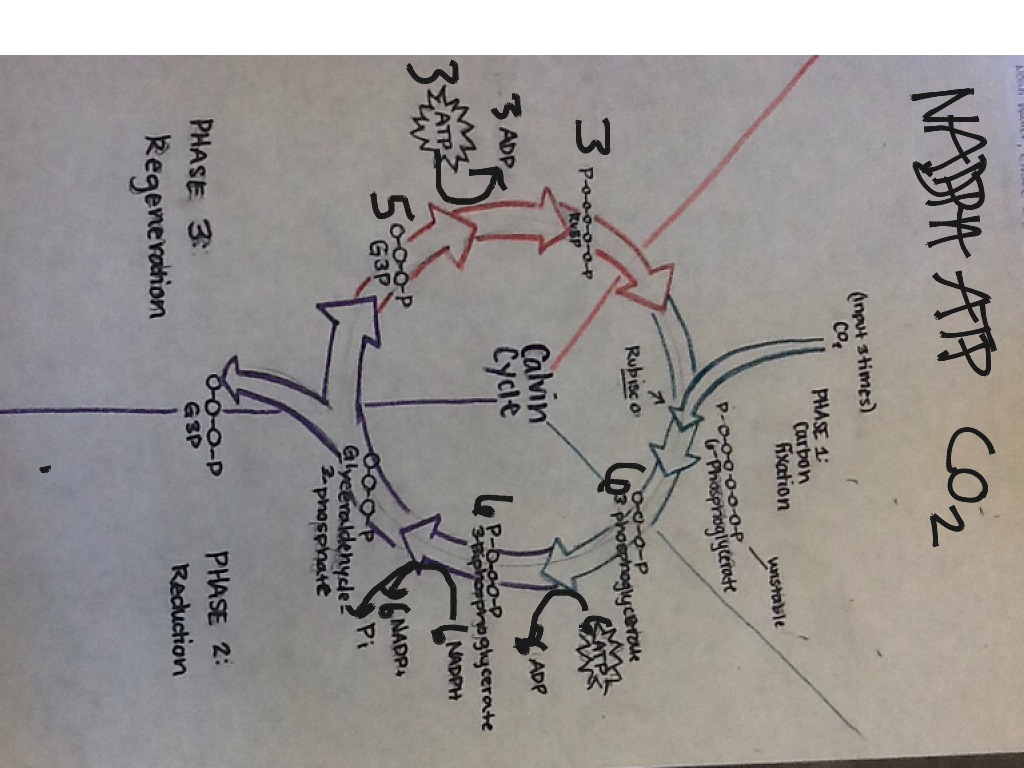 NADPH ATP CO2
(Input 3 times)
CO2
PHASE 1:
Carbon
fixation
P-O-O-O-O-O-O-P
6-Phosphoglycerate
unstable
Rubisco
6
O-O-O-P
3-Phosphoglycerate
6 ATP
6 ADP
6
P-O-O-O-P
6 NADPH
6 NADP+
Pi
O-O-O-P
Glyceraldehyde-
PHASE 2:
Reduction
O-O-O-P
G3P
PHASE 3:
Regeneration
5
O-O-O-P
G3P
3 ATP
3 ADP
3
P-O-O-O-O-O-P
RuBP
Calvin
Cycle